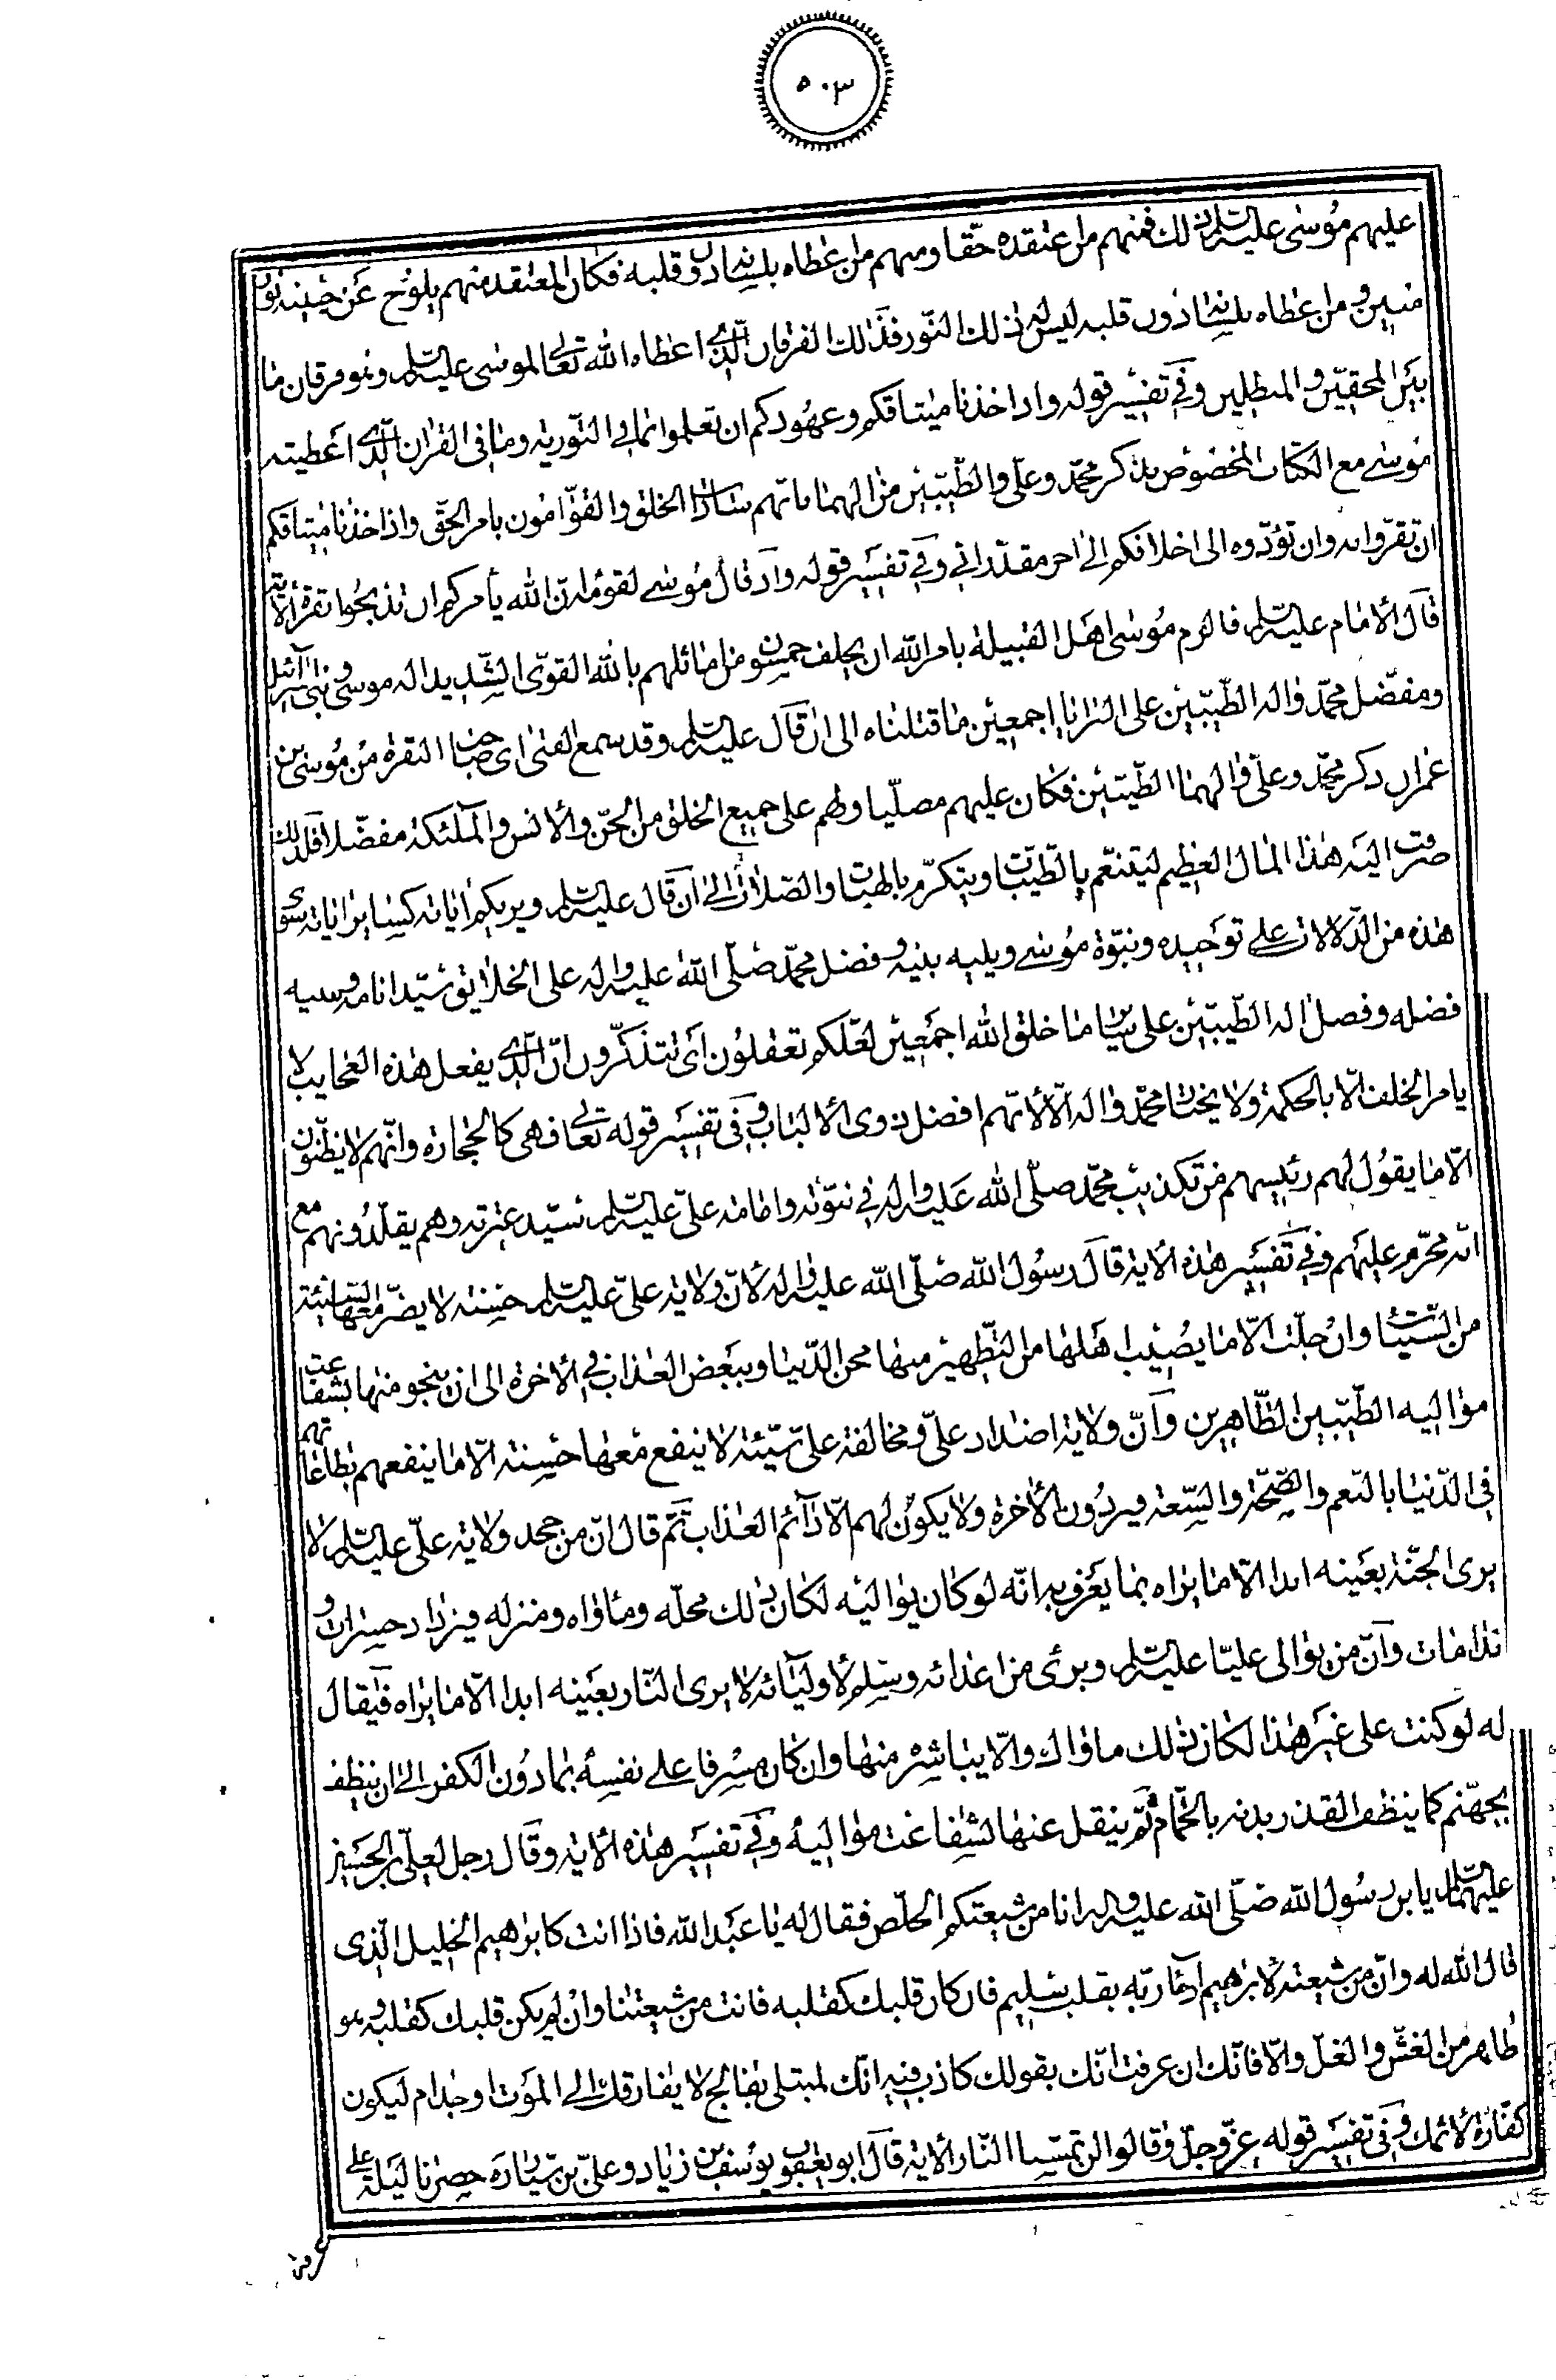 ٥٠٣
عليهم موسى عليه السلم ذلك فمنهم من اعتقده حقا ومنهم من اعطاه بلسانه دون قلبه فكان المعتقد منهم يلوح على جبينه نور
مبين ومن اعطاه بلسانه دون قلبه ليس له ذلك النور فذلك الفرقان الذى اعطاه الله تعالى لموسى عليه السلم وهو فرقان ما
بين المحقين والمبطلين وفي تفسير قوله واذ اخذنا ميثاقكم وعهودكم ان تعلموا بما في التورية وما في القران الذى اعطيته
موسى مع الكتاب المخصوص بذكر محمد وعلى والطيبين من الهما بانهم سادة الخلق والقوامون بامر الحق واذ اخذنا ميثاقكم
ان تقروا به وان تؤدوه الى اخلافكم الى اخر مقدراتي وفي تفسير قوله واذ قال موسى لقومه ان الله يأمركم ان تذبحوا بقرة الاية
قال الامام عليه السلم فالزم موسى اهل القبيلة بامر الله ان يحلف خمسون من اماثلهم بالله القوى الشديد اله موسى وبنى اسرآئيل
ومفضل محمد واله الطيبين على البرايا اجمعين ما قتلناه الى ان قال عليه السلم وقد سمع الفتى اى صاحب البقرة من موسى بن
عمران ذكر محمد وعلى والهما الطيبين فكان عليهم مصليا ولهم على جميع الخلق من الجن والانس والملئكة مفضلا فلذلك
صرفت اليه هذا المال العظيم ليتنعم بالطيبات ويتكرم بالهبات والصلات الى ان قال عليه السلم ويريكم اياته كساير اياته سوى
هذه من الدلالات على توحيده ونبوة موسى ويليه بنيه وفضل محمد صلى الله عليه واله على الخلايق سيد انامه وسيه
فضله وفضل اله الطيبين على ساير ما خلق الله اجمعين لعلكم تعقلون اى تتذكرون ان الذى يفعل هذه العجايب لا
يامر الخلف الا بالحكمة ولا يختار محمد واله الا لانهم افضل ذوى الالباب وفي تفسير قوله تعالى فهى كالحجارة وانهم لا يظنون
الا ما يقول لهم رئيسهم من تكذيب محمد صلى الله عليه واله في نبوته وامامة على عليه السلم سيد عترته وهم يقلدونهم مع
انه محرم عليهم وفي تفسير هذه الاية قال رسول الله صلى الله عليه واله لان ولاية على عليه السلم حسنة لا يضر معها سيئة
من السيئات وان جلت الا ما يصيب اهلها من التطهير منها بمحن الدنيا وببعض العذاب في الاخرة الى ان ينجو منها بشفاعت
مواليه الطيبين الطاهرين وان ولاية اضداد على ومخالفة على سيئة لا ينفع معها حسنة الا ما ينفعهم بطاعاتهم
في الدنيا بالنعم والصحة والسعة ويردون الاخرة ولا يكون لهم الا دآئم العذاب ثم قال ان من جحد ولاية على عليه السلم لا
يرى الجنة بعينه ابدا الا ما يراه بما يعرف به انه لو كان يواليه لكان ذلك محله وماواه ومنزله فيزداد حسرات و
ندامات وان من يوالى عليا عليه السلم وبرئ من اعدائه وسلم لاوليائه لا يرى النار بعينه ابدا الا ما يراه فيقال
له لو كنت على غير هذا لكان ذلك ماواك والا يباشر منها وان كان مسرفا على نفسه بما دون الكفر الى ان ينظف
بجهنم كما ينظف القذر بدنه بالحمام ثم ينقل عنها بشفاعت مواليه وفي تفسير هذه الاية وقال رجل لعلى بن الحسين
عليهما السلم يابن رسول الله صلى الله عليه واله انا من شيعتكم الخلص فقال له يا عبد الله فاذا انت كابرهيم الخليل الذى
قال الله له وان من شيعته لابرهيم اذ جاء ربه بقلب سليم فان كان قلبك كقلبه فانت من شيعتنا وان لم يكن قلبك كقلبه وهو
طاهر من الغش والغل والا فانك ان عرفت انك بقولك كاذب فيه انك لمبتلى بفالج لا يفارقك الى الموت او جذام ليكون
كفارة لاثمك وفي تفسير قوله عز وجل وقالوا لن تمسنا النار الاية قال ابو يعقوب يوسف بن زياد وعلى بن سيار حضرنا ليلة على